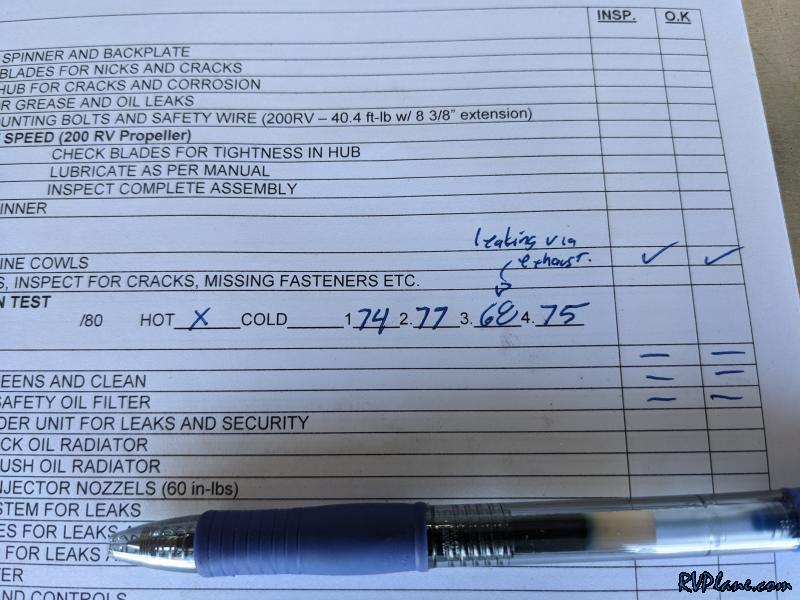 INSP. O.K
SPINNER AND BACKPLATE
BLADES FOR NICKS AND CRACKS
HUB FOR CRACKS AND CORROSION
OR GREASE AND OIL LEAKS
UNTING BOLTS AND SAFETY WIRE (200RV – 40.4 ft-lb w/ 8 3/8" extension)
SPEED (200 RV Propeller)
CHECK BLADES FOR TIGHTNESS IN HUB
LUBRICATE AS PER MANUAL
INSPECT COMPLETE ASSEMBLY
INNER
leaking via
exhaust.
INE COWLS ✓ ✓
S, INSPECT FOR CRACKS, MISSING FASTENERS ETC.
N TEST
/80 HOT X COLD 1 74 2. 77 3. 68 4. 75
EENS AND CLEAN
SAFETY OIL FILTER
DER UNIT FOR LEAKS AND SECURITY
CK OIL RADIATOR
USH OIL RADIATOR
NJECTOR NOZZELS (60 in-lbs)
STEM FOR LEAKS
ES FOR LEAKS
FOR LEAKS
TER
AND CONTROLS
RVPlane.com